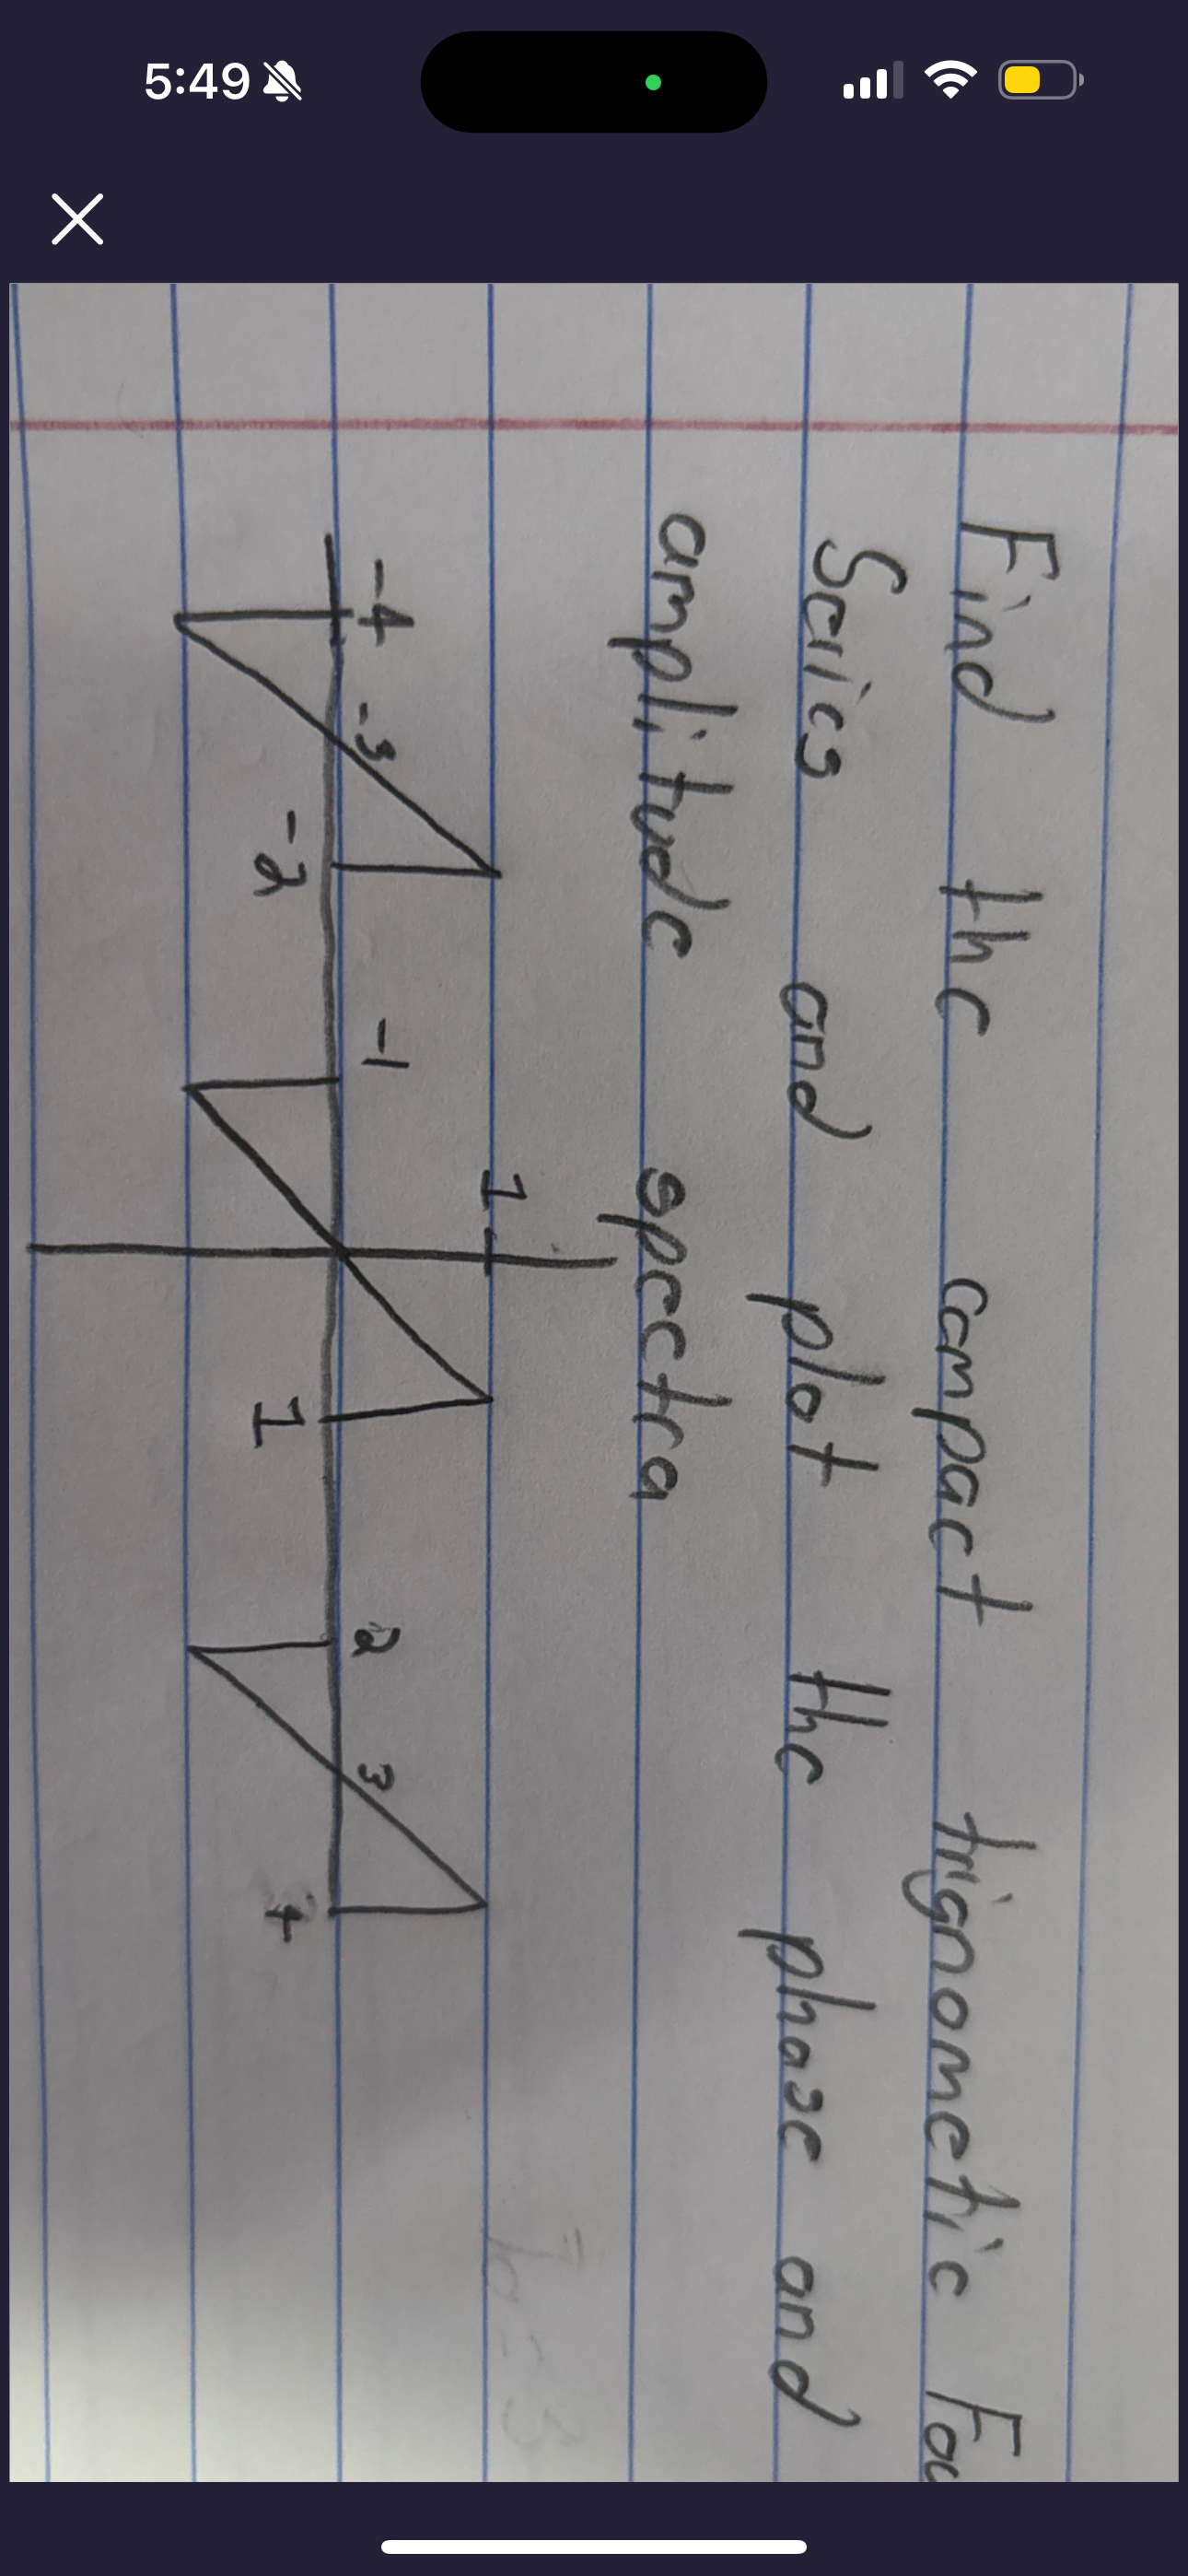 5:49
Find the compact trignometric Fou
Series and plot the phase and
amplitude spectra
1
-4 -3 -1 2 3
-2 1 4